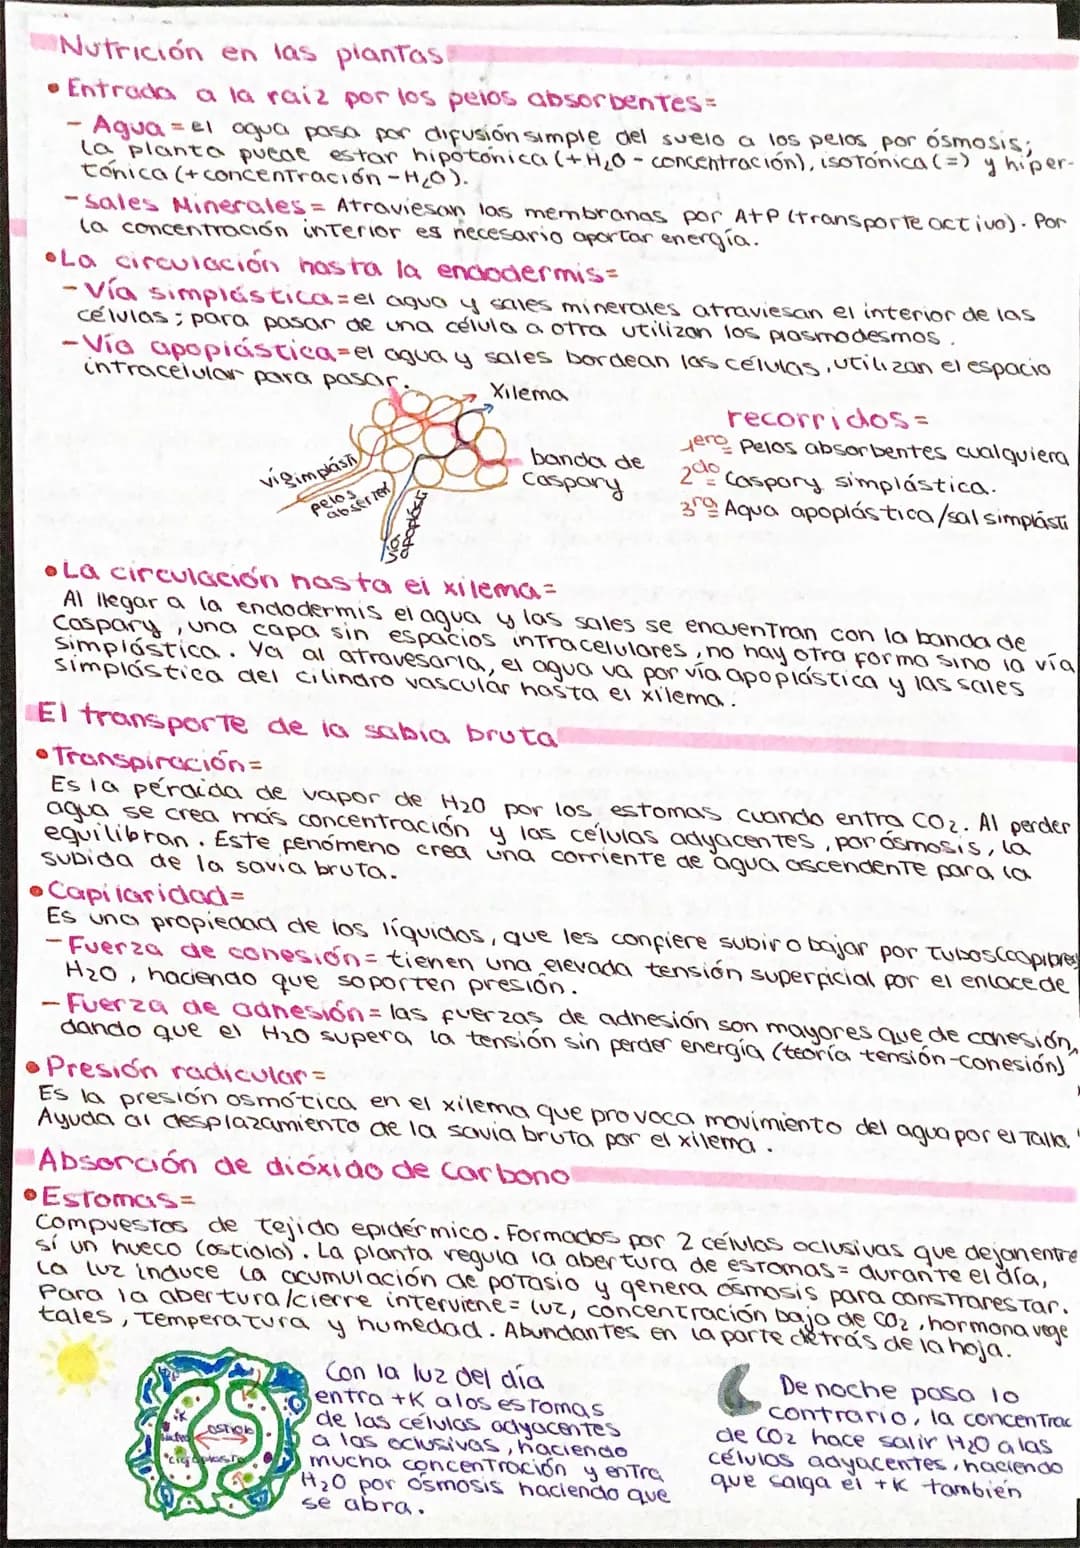 Nutrición en las plantas
• Entrada a la raiz por los pelos absorbentes=
- Agua = el agua pasa por difusión simple del suelo a los pelos por ósmosis;
la planta puede estar hipotónica (+H₂O - concentración), isotónica (=) y hiper-
tónica (+concentración -H₂O).
- Sales Minerales = Atraviesan las membranas por AtP (transporte activo). Por
la concentración interior es necesario aportar energía.
• La circulación hasta la endodermis=
- Vía simplástica = el agua y sales minerales atraviesan el interior de las
células; para pasar de una célula a otra utilizan los plasmodesmos.
- Vía apoplástica = el agua y sales bordean las células, utilizan el espacio
intracelular para pasar.
Xilema
vía simplásti
pelos
absorben
vía
apoplásti
banda de
Caspary
recorridos=
1ero Pelos absorbentes cualquiera
2do= Caspary simplástica.
3ro= Agua apoplástica/sal simplásti
• La circulación hasta el xilema=
Al llegar a la endodermis el agua y las sales se encuentran con la banda de
Caspary, una capa sin espacios intracelulares, no hay otra forma sino la vía
simplástica. Ya al atravesarla, el agua va por vía apoplástica y las sales
simplástica del cilindro vascular hasta el xilema.
El transporte de la sabia bruta
• Transpiración=
Es la pérdida de vapor de H2O por los estomas cuando entra CO2. Al perder
agua se crea más concentración y las células adyacentes, por ósmosis, la
equilibran. Este fenómeno crea una corriente de agua ascendente para la
subida de la savia bruta.
• Capilaridad=
Es una propiedad de los líquidos, que les confiere subir o bajar por tubos (capilares)
- Fuerza de cohesión= tienen una elevada tensión superficial por el enlace de
H2O, haciendo que soporten presión.
- Fuerza de adhesión= las fuerzas de adhesión son mayores que de cohesión,
dando que el H2O supera la tensión sin perder energía (teoría tensión-cohesión)
• Presión radicular=
Es la presión osmótica en el xilema que provoca movimiento del agua por el tallo.
Ayuda al desplazamiento de la savia bruta por el xilema.
Absorción de dióxido de Carbono
• Estomas=
Compuestos de tejido epidérmico. Formados por 2 células oclusivas que dejan entre
sí un hueco (ostiolo). La planta regula la abertura de estomas= durante el día,
la luz induce la acumulación de potasio y genera ósmosis para constrarestar.
Para la abertura/cierre interviene= luz, concentración baja de CO2, hormona vege
tales, temperatura y humedad. Abundantes en la parte detrás de la hoja.
ostiolo
Con la luz del dia
entra +K a los estomas
de las células adyacentes
a las oclusivas, haciendo
mucha concentración y entra
H₂O por ósmosis haciendo que
se abra.
De noche pasa lo
contrario, la concentrac
de CO2 hace salir H2O a las
células adyacentes, haciendo
que salga el +K también